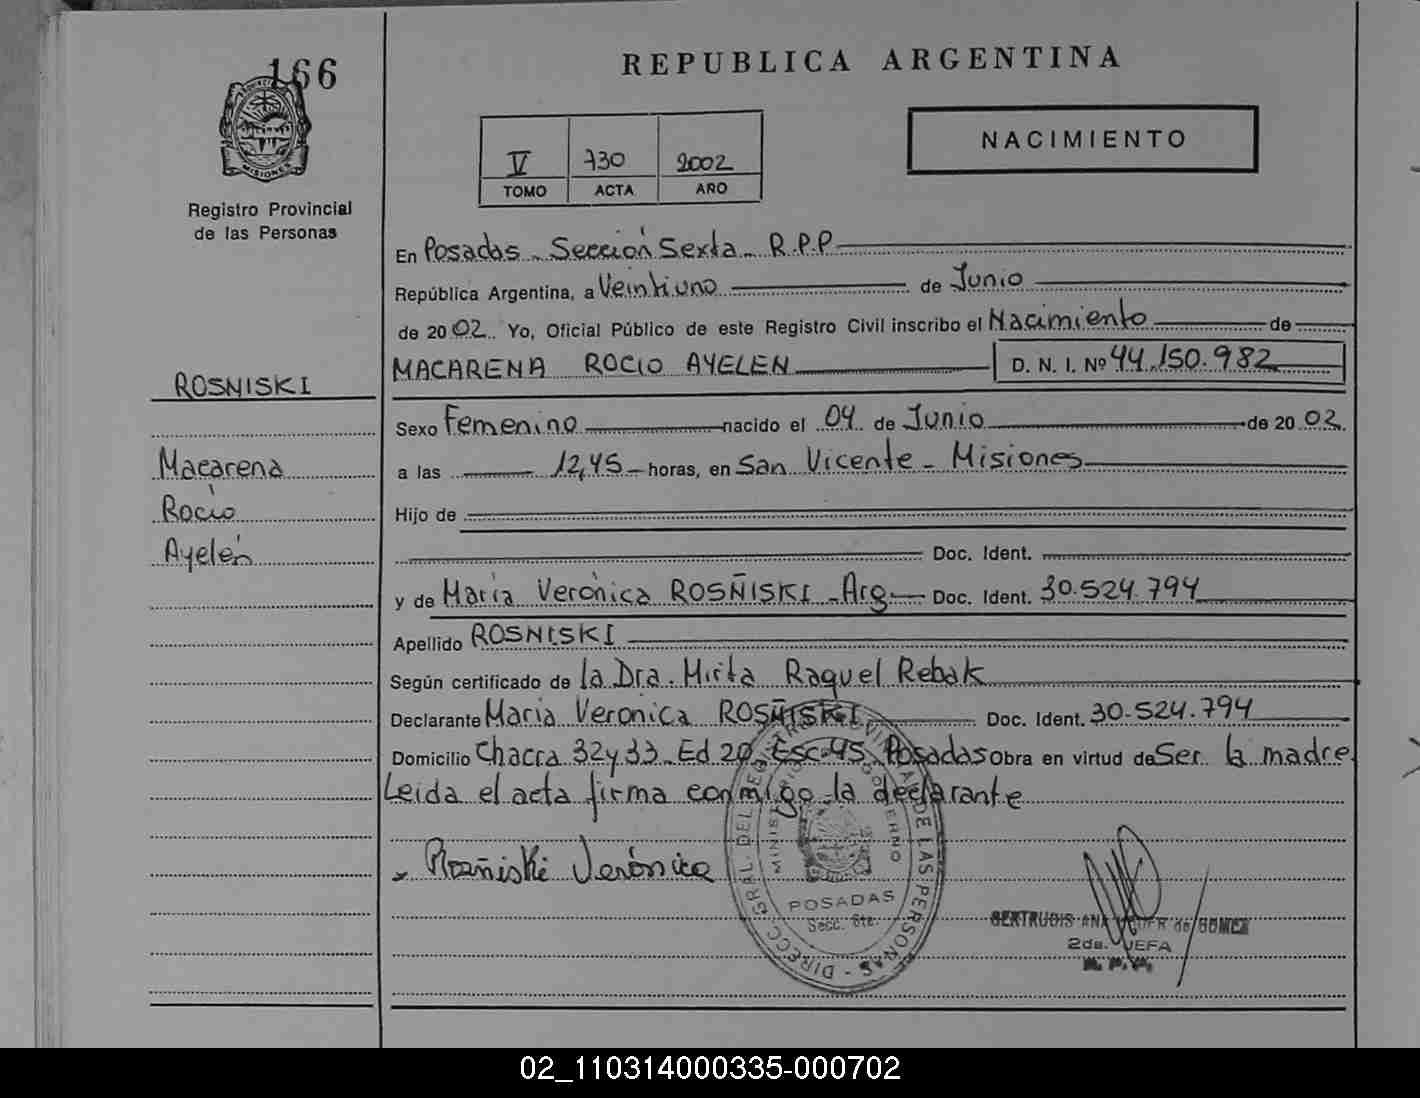 166
REPUBLICA ARGENTINA
V 730 2002
TOMO ACTA AÑO
NACIMIENTO
MISIONES
Registro Provincial
de las Personas
En Posadas - Sección Sexta - R.P.P
República Argentina, a Veintiuno de Junio
de 2002. Yo, Oficial Público de este Registro Civil inscribo el Nacimiento de
MACARENA ROCIO AYELEN D. N. I. Nº 44.150.982
ROSNISKI
Sexo Femenino nacido el 04 de Junio de 2002.
Macarena
a las 12,45 horas, en San Vicente - Misiones
Rocío
Hijo de
Ayelén
Doc. Ident.
y de María Verónica ROSÑISKI - Arg Doc. Ident. 30.524.794
Apellido ROSNISKI
Según certificado de la Dra. Mirta Raquel Rebak
Declarante Maria Veronica ROSÑISKI Doc. Ident. 30.524.794
Domicilio Chacra 32 y 33 - Ed 20 Esc. 45 Posadas Obra en virtud de Ser la madre
Leida el acta firma conmigo la declarante
Rosñiski Verónica
DIRECC. GRAL. DEL REGISTRO PROVINCIAL DE LAS PERSONAS
GOBIERNO
POSADAS
Secc. 6ta.
GERTRUDIS ANA de GOMEZ
2da. JEFA
R. P. P.
02_110314000335-000702